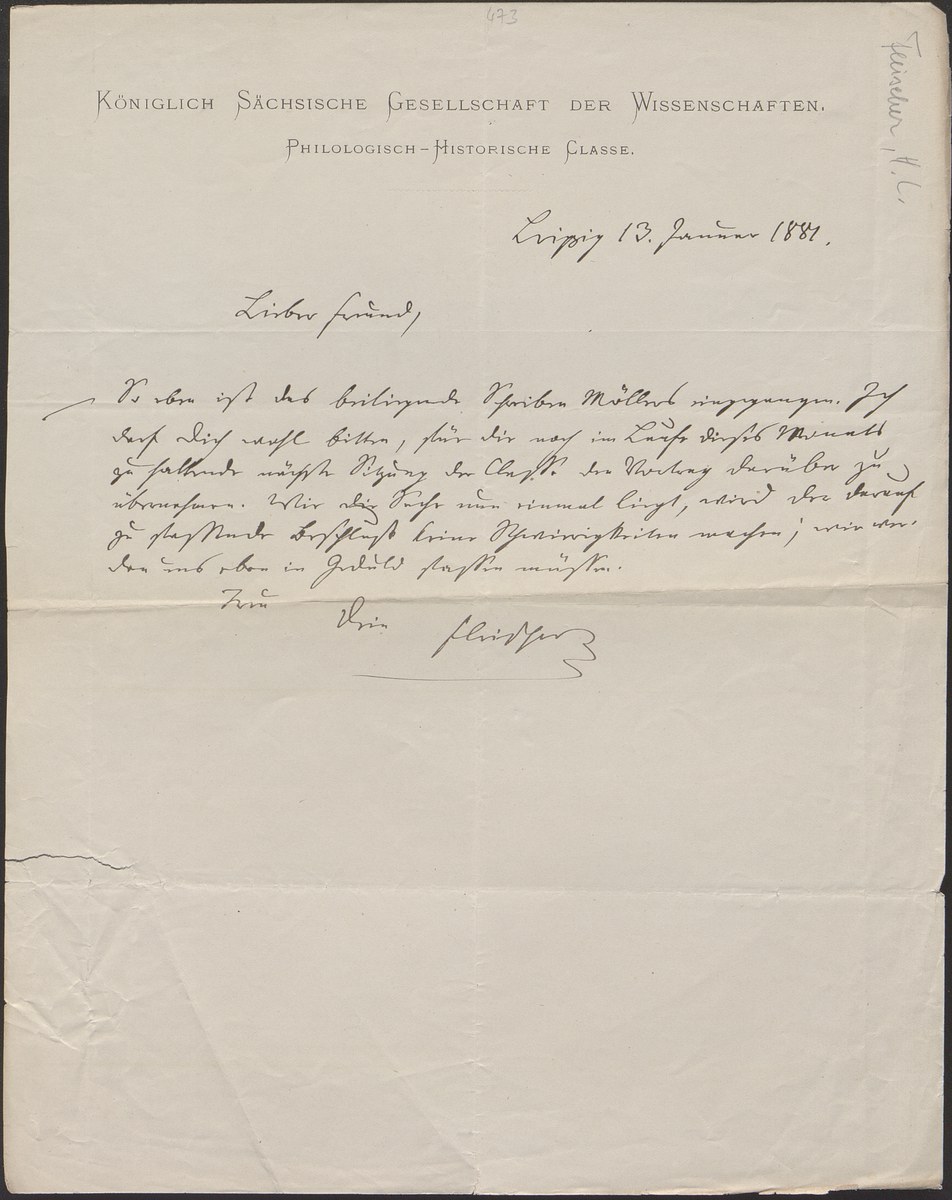 473
Fleischer, H. L.
Königlich Sächsische Gesellschaft der Wissenschaften.
Philologisch-Historische Classe.
Leipzig 13. Januar 1881.
Lieber Freund,
So eben ist das beiliegende Schreiben Möllers eingegangen. Ich
darf Dich wohl bitten, für die noch im Laufe dieses Monats
zu haltende nächste Sitzung der Classe den Vortrag darüber zu
übernehmen. Wie die Sache nun einmal liegt, wird der darauf
zu fassende Beschluß keine Schwierigkeiten machen; wir wer-
den uns eben in Geduld fassen müssen.
Treu
Dein Fleischer